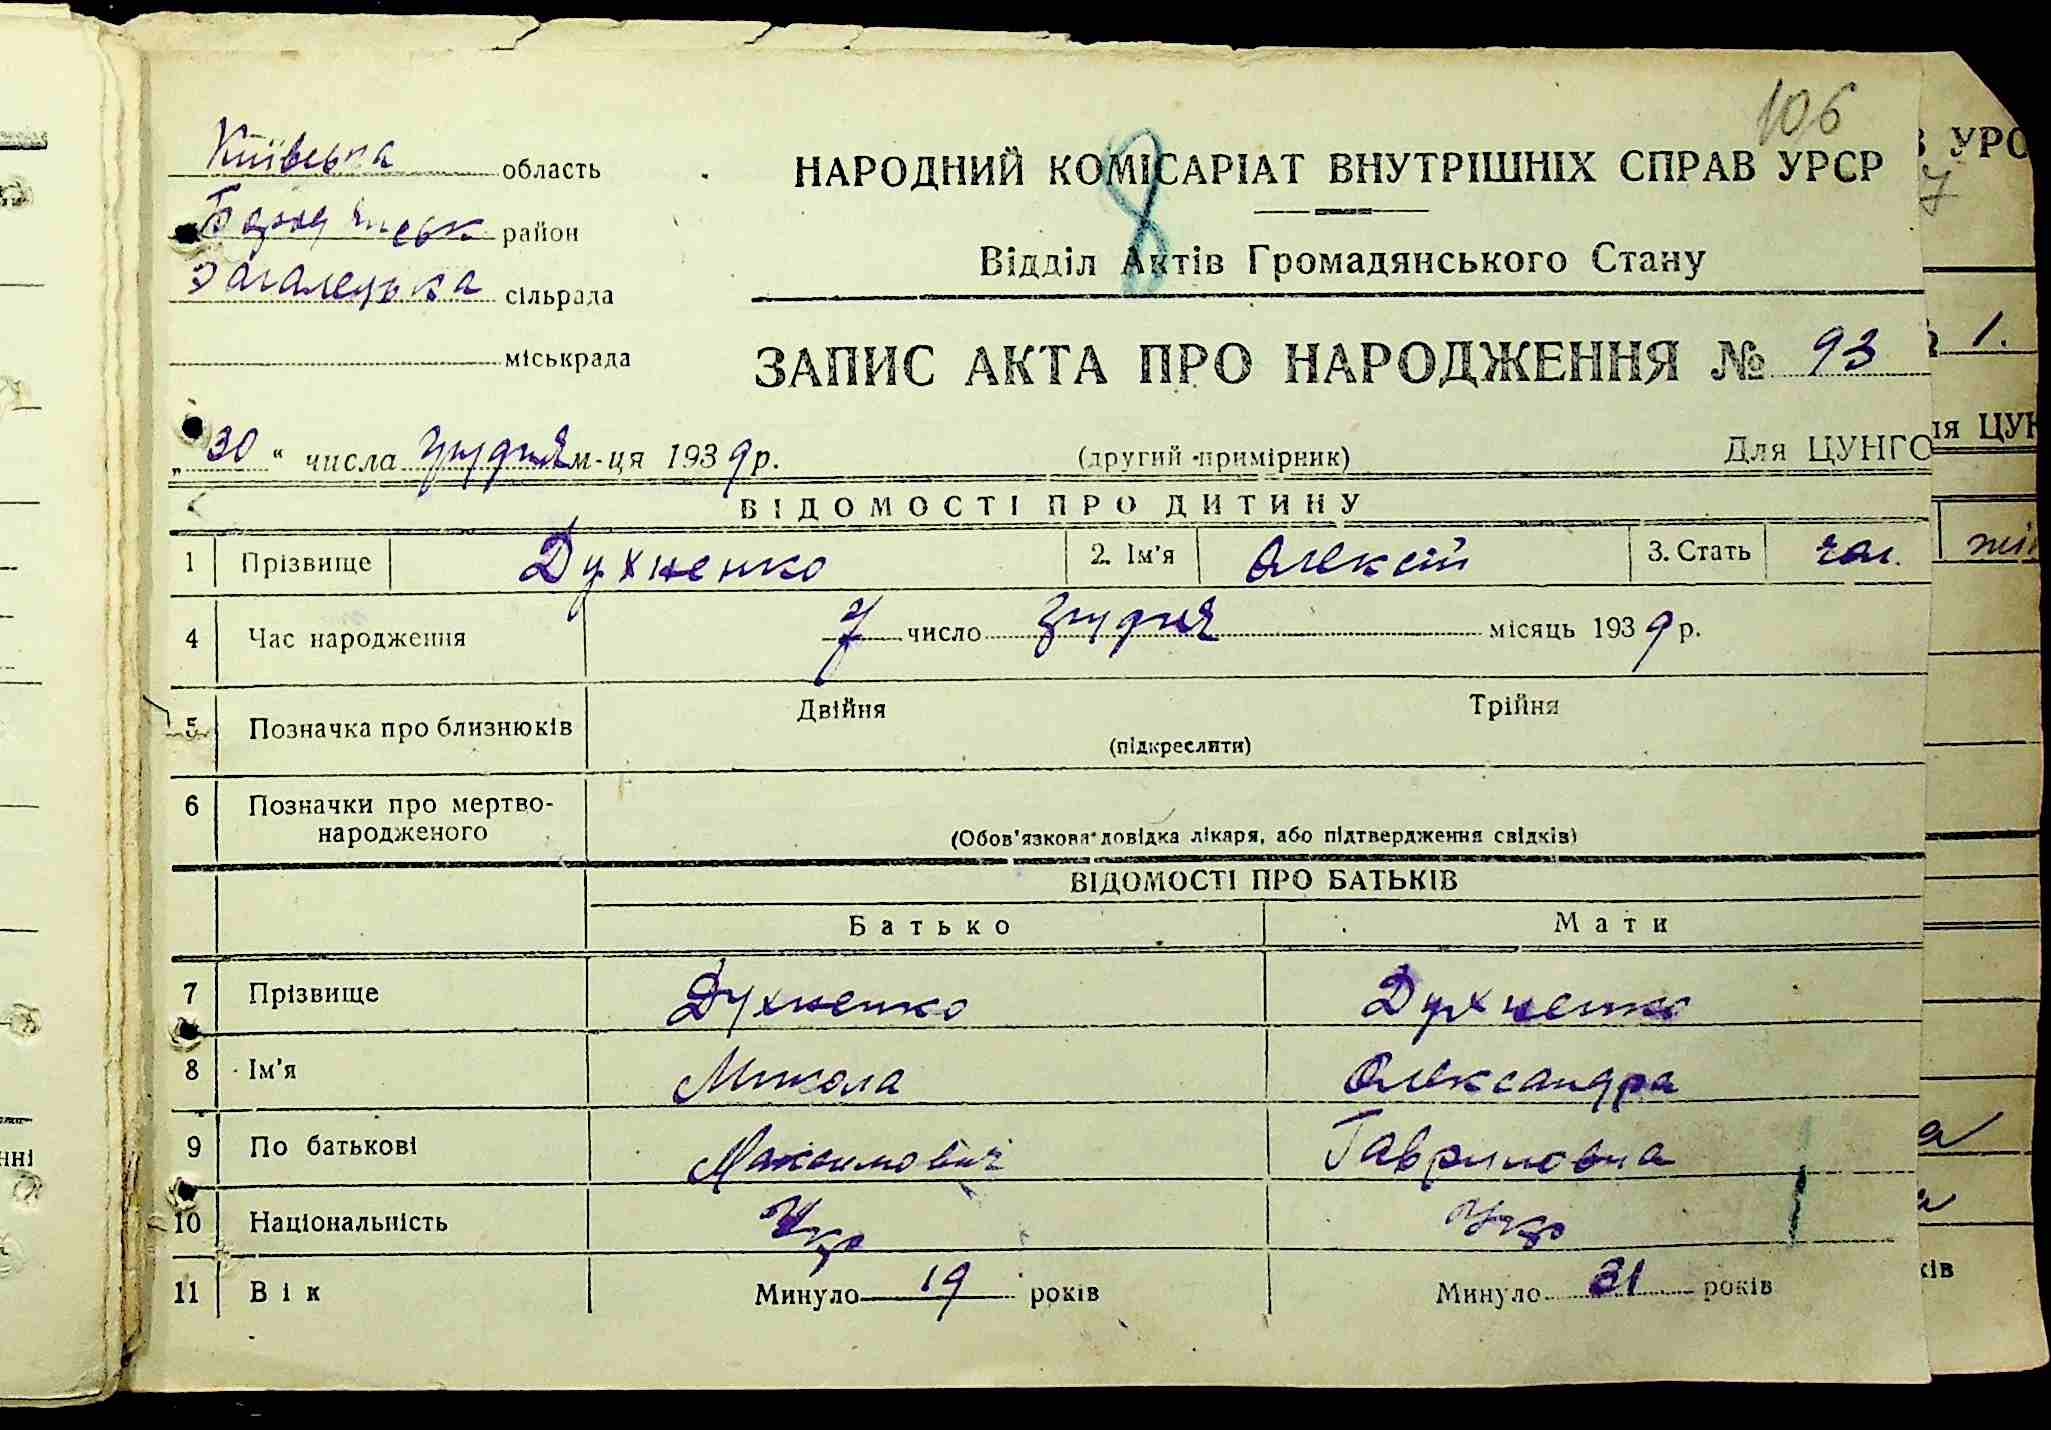 106
Київська область
Бородянськ район
Загалецька сільрада
міськрада
НАРОДНИЙ КОМІСАРІАТ ВНУТРІШНІХ СПРАВ УРСР
8
Відділ Актів Громадянського Стану
ЗАПИС АКТА ПРО НАРОДЖЕННЯ № 93
„30“ числа грудня м-ця 1939 р.
(другий примірник)
Для ЦУНГО
ВІДОМОСТІ ПРО ДИТИНУ
1 Прізвище Духненко 2. Ім'я Олексій 3. Стать чол.
4 Час народження 7 число грудня місяць 1939 р.
5 Позначка про близнюків Двійня Трійня
(підкреслити)
6 Позначки про мертво-
народженого
(Обов'язкова довідка лікаря, або підтвердження свідків)
ВІДОМОСТІ ПРО БАТЬКІВ
Батько Мати
7 Прізвище Духненко Духненко
8 Ім'я Микола Олександра
9 По батькові Максимович Гавриловна
10 Національність Укр Укр
11 Вік Минуло 19 років Минуло 31 років